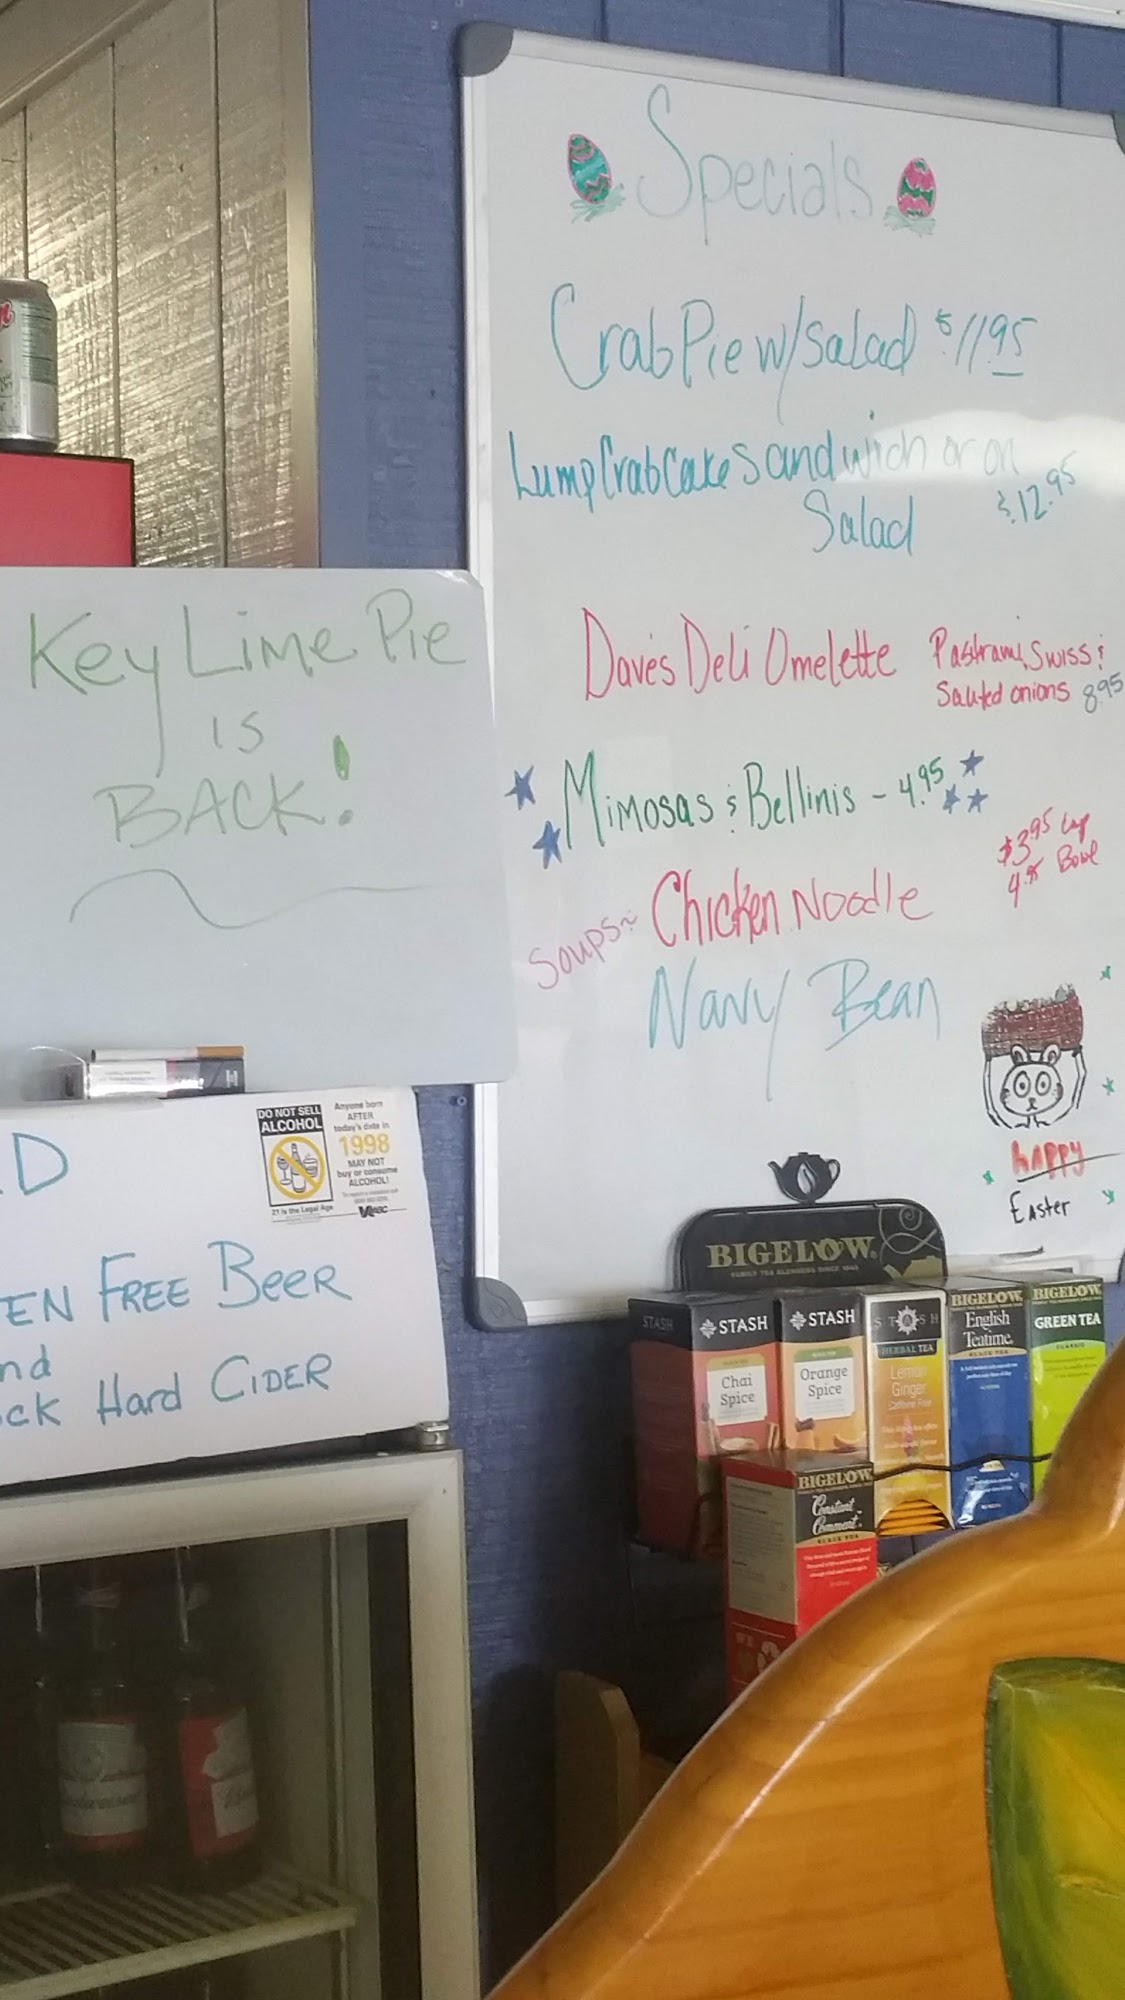 Specials
Crab Pie w/Salad $11.95
Lump Crab Cake Sandwich or on
Salad $12.95
Dave's Deli Omelette Pastrami, Swiss &
Sauted onions 8.95
Mimosas & Bellinis - 4.95
$3.95 Cup
4.95 Bowl
Soups~ Chicken Noodle
Navy Bean
happy
Easter
Key Lime Pie
is
BACK!
DO NOT SELL
ALCOHOL
21 is the Legal Age
Anyone born
AFTER
today's date in
1998
MAY NOT
buy or consume
ALCOHOL!
ABC
D
EN FREE BEER
nd
ck Hard CIDER
BIGELOW
FAMILY TEA BLENDERS SINCE 1945
STASH
STASH
Chai
Spice
STASH
Orange
Spice
STASH
HERBAL TEA
Lemon
Ginger
Caffeine Free
BIGELOW
English
Teatime
BLACK TEA
BIGELOW
GREEN TEA
CLASSIC
BIGELOW
Constant
Comment
BLACK TEA
WE
Budweiser